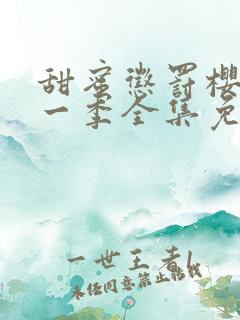 甜蜜惩罚樱
一季全集免
一世王者l
未经同意禁止转载